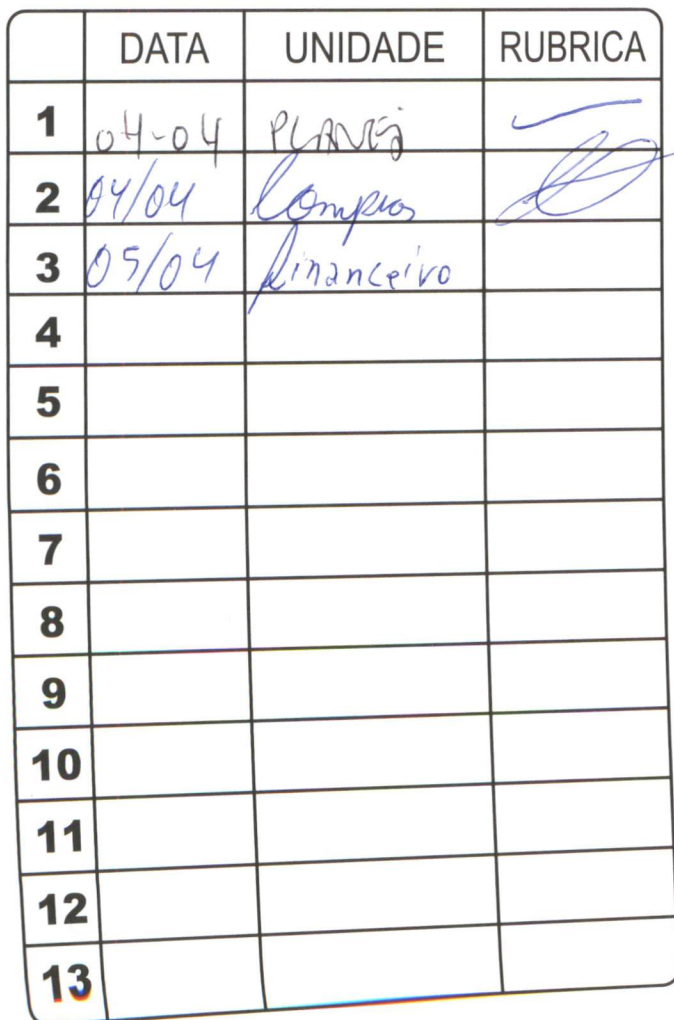 DATA UNIDADE RUBRICA
1 04-04 PLANEJ
2 04/04 Compras
3 05/04 Financeiro
4
5
6
7
8
9
10
11
12
13